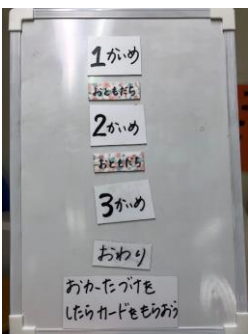 1かいめ
おともだち
2かいめ
おともだち
3かいめ
おわり
おかたづけを
したらカードをもらおう